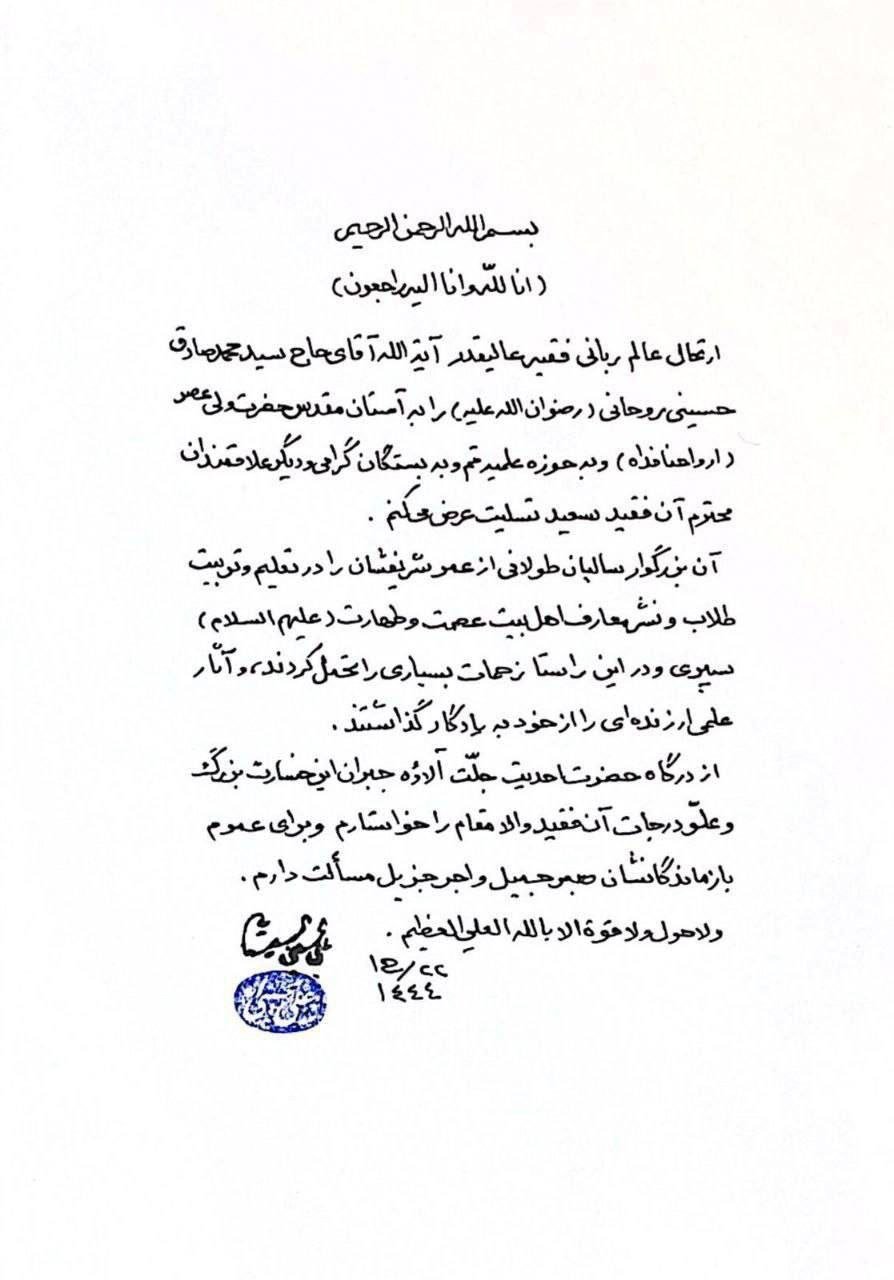 بسم الله الرحمن الرحیم
(انا لله وانا الیه راجعون)
ارتحال عالم ربانی فقیه عالیقدر آیة الله آقای حاج سید محمد صادق
حسینی روحانی (رضوان الله علیه) را به آستان مقدس حضرت ولی عصر
(ارواحنا فداه) وبه حوزه علمیه قم وبه بستگان گرامی ودیگر علاقمندان
محترم آن فقید سعید تسلیت عرض میکنم .
آن بزرگوار سالیان طولانی از عمر شریفشان را در تعلیم وتربیت
طلاب ونشر معارف اهل بیت عصمت وطهارت (علیهم السلام)
سپری ودر این راستا زحمات بسیاری را تحمل کردند، وآثار
علمی ارزنده ای را از خود به یادگار گذاشتند .
از درگاه حضرت احدیت جلّت آلاؤه جبران این خسارت بزرگ
وعلوّ درجات آن فقید والا مقام را خواستارم وبرای عموم
بازماندگانشان صبر جمیل واجر جزیل مسألت دارم .
ولا حول ولا قوة الا بالله العلی العظیم .
علی الحسینی السیستانی
٢٢/ج١
١٤٤٤